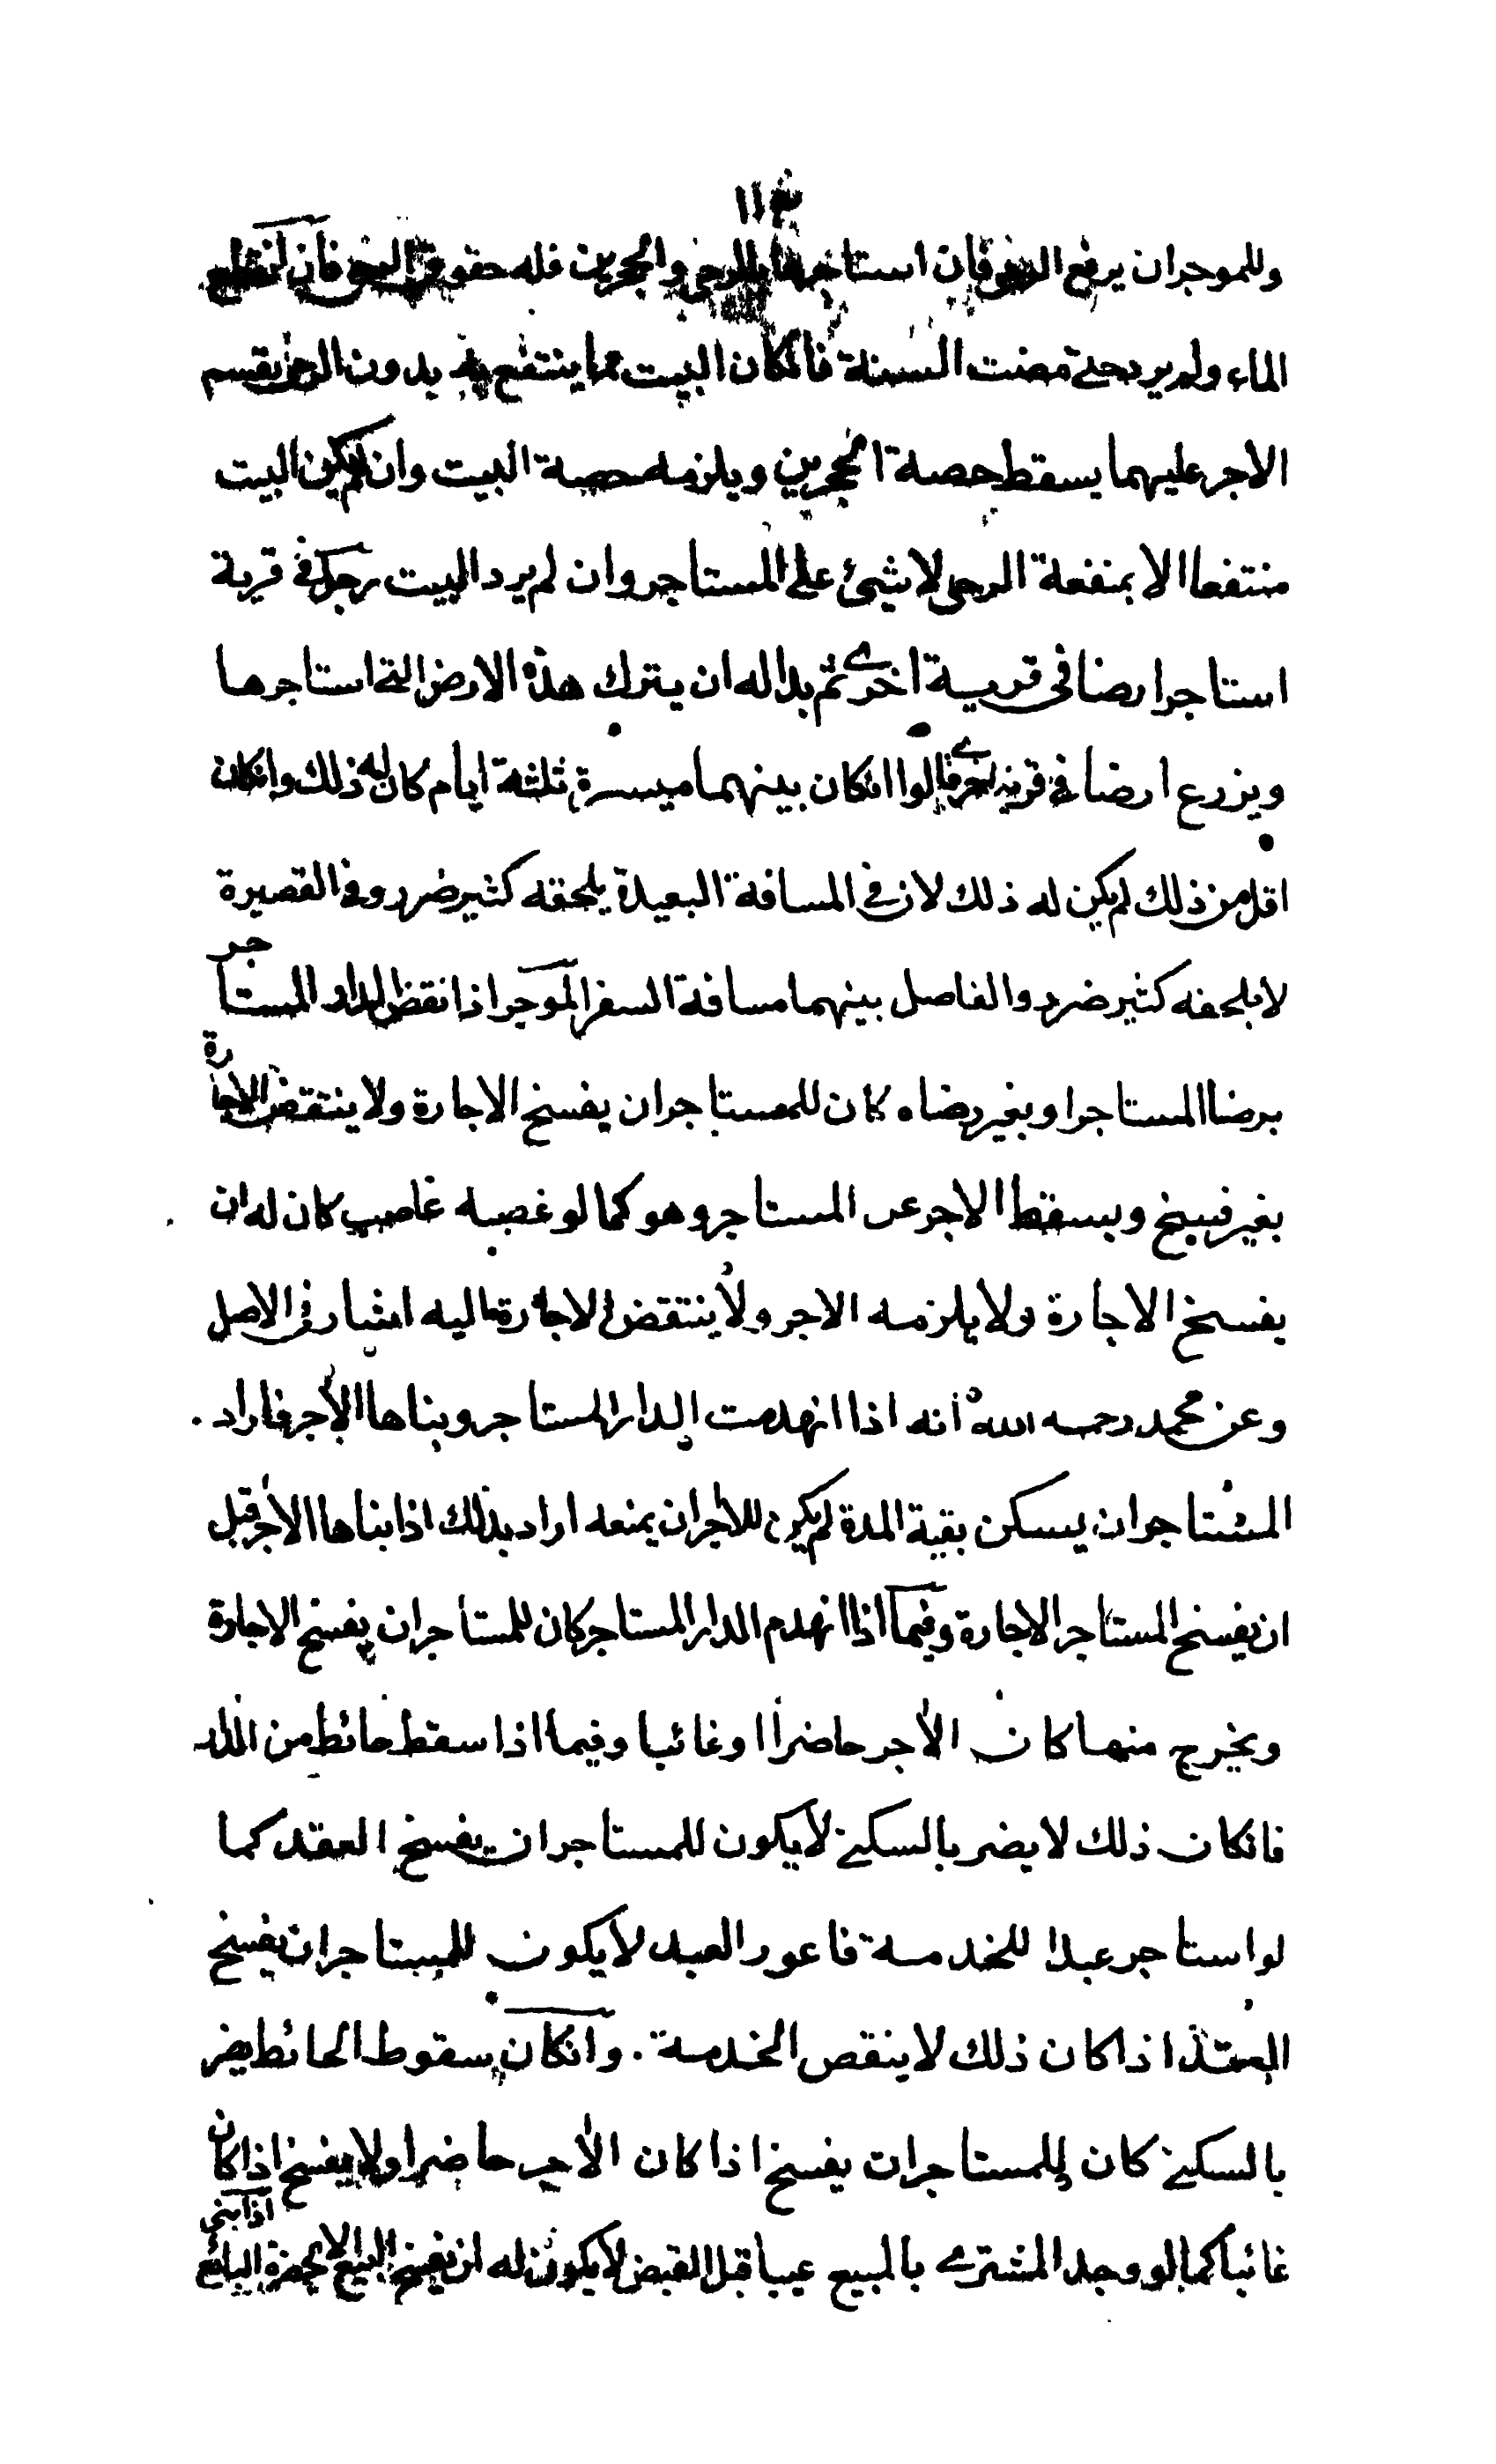 ١١٣
وللموجر ان يرفع الرحى فان استاجرها بالرحى والحجرين فله حقوق فان انقطع
الماء ولم يرد حتى مضت السنة فانكان البيت مما ينتفع به بدون الرحى يقسم
الاجر عليهما يسقط حصة الحجرين ويلزمه حصة البيت وان لم يكن البيت
منتفعا الا بمنفعة الرحى لا شيئ على المستاجر وان لم يرد البيت رجل في قرية
استاجر ارضا في قرية اخرى ثم بدا له ان يترك هذه الارض التي استاجرها
ويزرع ارضا في قرية اخرى قالوا انكان بينهما ميسرة ثلثة ايام كان له ذلك وانكان
اقل من ذلك لم يكن له ذلك لان في المسافة البعيدة يلحقه كثير ضرر وفي القصيرة
لا يلحقه كثير ضرر والفاصل بينهما مسافة السفر الموجر اذا نقض الدار المستاجر
برضا المستاجر او بغير رضاه كان للمستاجر ان يفسخ الاجارة ولا ينتقض الاجارة
بغير فسخ ويسقط الاجر عن المستاجر وهو كما لو غصبه غاصب كان له ان
يفسخ الاجارة ولا يلزمه الاجر ولا ينتقض الاجارة اليه اشار في الاصل
وعن محمد رحمه الله انه اذا انهدمت الدار المستاجر وبناها الآجر فاراد
المستاجر ان يسكن بقية المدة لم يكن للآجر ان يمنعه اراد بذلك اذا بناها الآجر قبل
ان يفسخ المستاجر الاجارة وفيما اذا انهدم الدار المستاجر كان للمستاجر ان يفسخ الاجارة
ويخرج منها كان الآجر حاضرا او غائبا وفيما اذا سقط حائط من الدار
فانكان ذلك لا يضر بالسكنى لا يكون للمستاجر ان يفسخ العقد كما
لو استاجر عبدا للخدمة فاعور العبد لا يكون للمستاجر ان يفسخ
العقد اذا كان ذلك لا ينقص الخدمة . وانكان سقوط الحائط يضر
بالسكنى كان للمستاجر ان يفسخ اذا كان الآجر حاضرا ولا يفسخ اذا كان
غائبا كما لو وجد المشترى بالمبيع عيبا قبل القبض لا يكون له ان يفسخ البيع الا بحضرة البائع اذا بنى